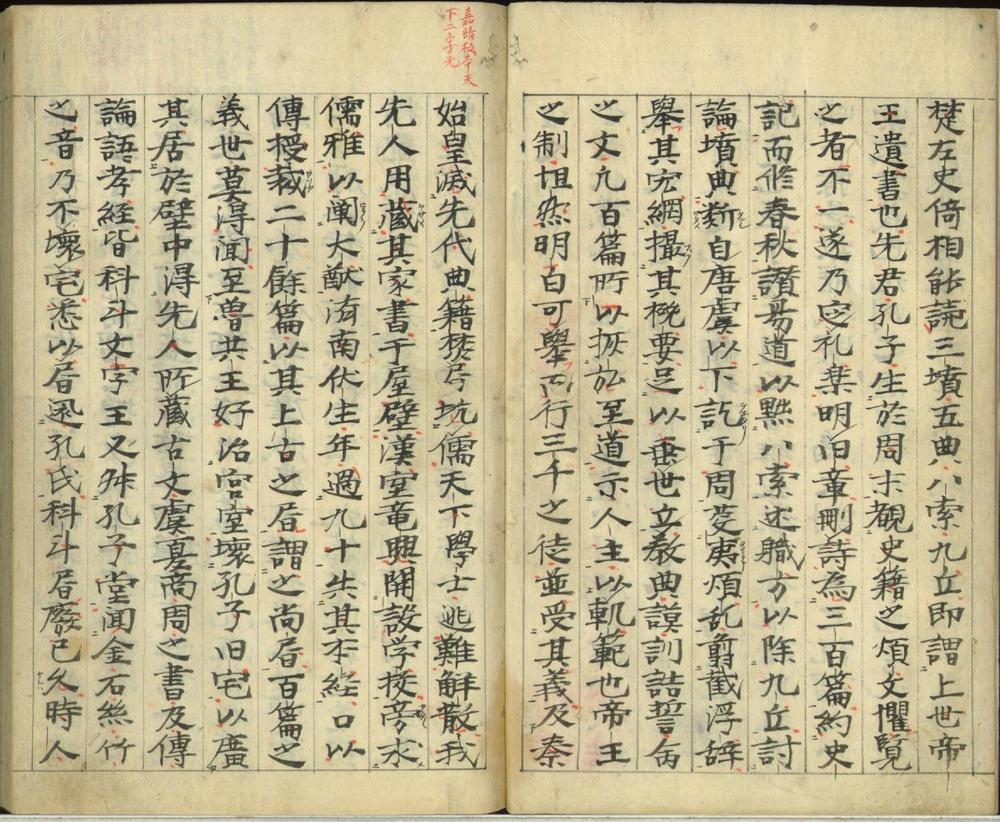 楚左史倚相能読三墳五典八索九丘即謂上世帝
王遺書也先君孔子生於周末覩史籍之煩文懼覧
之者不一遂乃定礼楽明旧章刪詩為三百篇約史
記而修春秋讃易道以黜八索述職方以除九丘討
論墳典断自唐虞以下訖于周芟夷煩乱剪截浮辞
舉其宏綱撮其機要足以垂世立教典謨訓誥誓命
之文凢百篇所以恢弘至道示人主以軌範也帝王
之制坦然明白可舉而行三千之徒並受其義及秦
始皇滅先代典籍焚書坑儒天下學士逃難解散我
先人用蔵其家書于屋壁漢室竜興開設学校旁求
儒雅以闡大猷済南伏生年過九十失其本経口以
傳授裁二十餘篇以其上古之書謂之尚書百篇之
義世莫得聞至魯共王好治宮室壊孔子旧宅以廣
其居於壁中得先人所蔵古文虞夏商周之書及傳
論語孝経皆科斗文字王又升孔子堂聞金石絲竹
之音乃不壊宅悉以書還孔氏科斗書廢已久時人
嘉靖板本天
下二字无